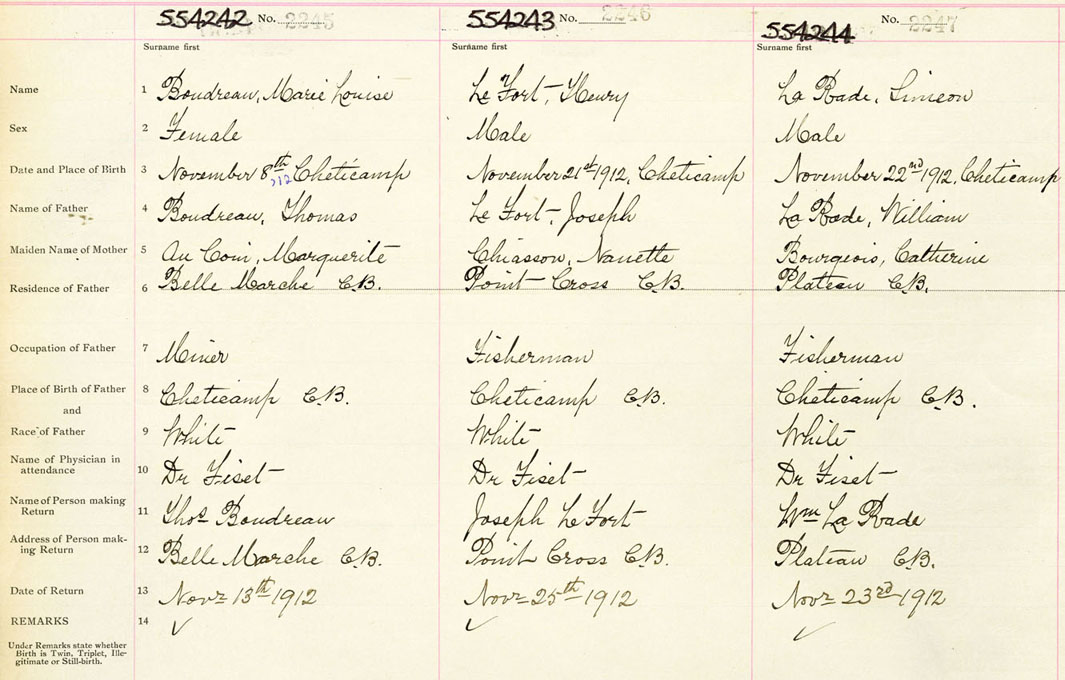 554242 No. 2245 554243 No. 2246 554244 No. 2247
Surname first Surname first Surname first
Name 1 Boudreau, Marie Louise Le Fort, Henry La Rade, Simeon
Sex 2 Female Male Male
Date and Place of Birth 3 November 8th '12 Cheticamp November 21st 1912, Cheticamp November 22nd 1912, Cheticamp
Name of Father 4 Boudreau, Thomas Le Fort, Joseph La Rade, William
Maiden Name of Mother 5 Au Coin, Marguerite Chiasson, Nanette Bourgeois, Catherine
Residence of Father 6 Belle Marche C.B. Point Cross C.B. Plateau C.B.
Occupation of Father 7 Miner Fisherman Fisherman
Place of Birth of Father 8 Cheticamp C.B. Cheticamp C.B. Cheticamp C.B.
and
Race of Father 9 White White White
Name of Physician in
attendance 10 Dr Fiset Dr Fiset Dr Fiset
Name of Person making
Return 11 Thos Boudreau Joseph Le Fort Wm La Rade
Address of Person mak-
ing Return 12 Belle Marche C.B. Point Cross C.B. Plateau C.B.
Date of Return 13 Novr 13th 1912 Novr 25th 1912 Novr 23rd 1912
REMARKS 14
Under Remarks state whether
Birth is Twin, Triplet, Ille-
gitimate or Still-birth.